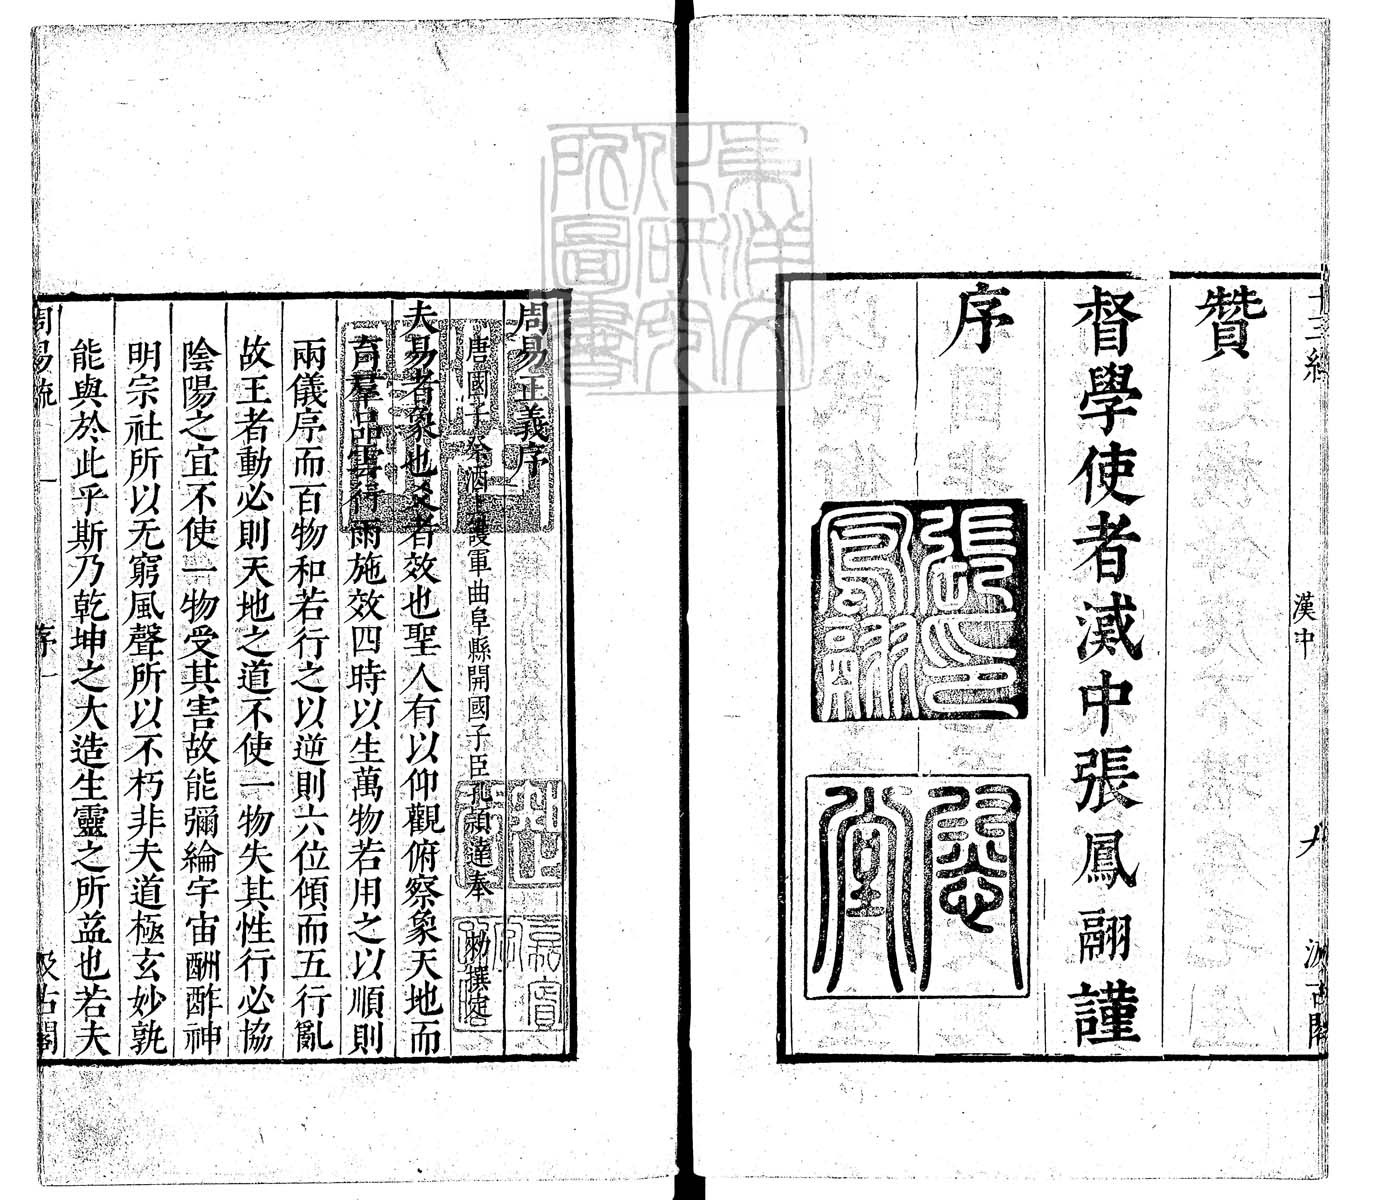 十三經
漢中
汲古閣
贊
督學使者漢中張鳳翮謹
序
張鳳翮印
東洋文化研究所圖書
周易正義序
唐國子祭酒上護軍曲阜縣開國子臣孔頴達奉 勑撰定
夫易者象也爻者效也聖人有以仰觀俯察象天地而
育羣品雲行雨施效四時以生萬物若用之以順則
兩儀序而百物和若行之以逆則六位傾而五行亂
故王者動必則天地之道不使一物失其性行必協
陰陽之宜不使一物受其害故能彌綸宇宙酬酢神
明宗社所以无窮風聲所以不朽非夫道極玄妙孰
能與於此乎斯乃乾坤之大造生靈之所益也若夫
周易疏
序
一
汲古閣